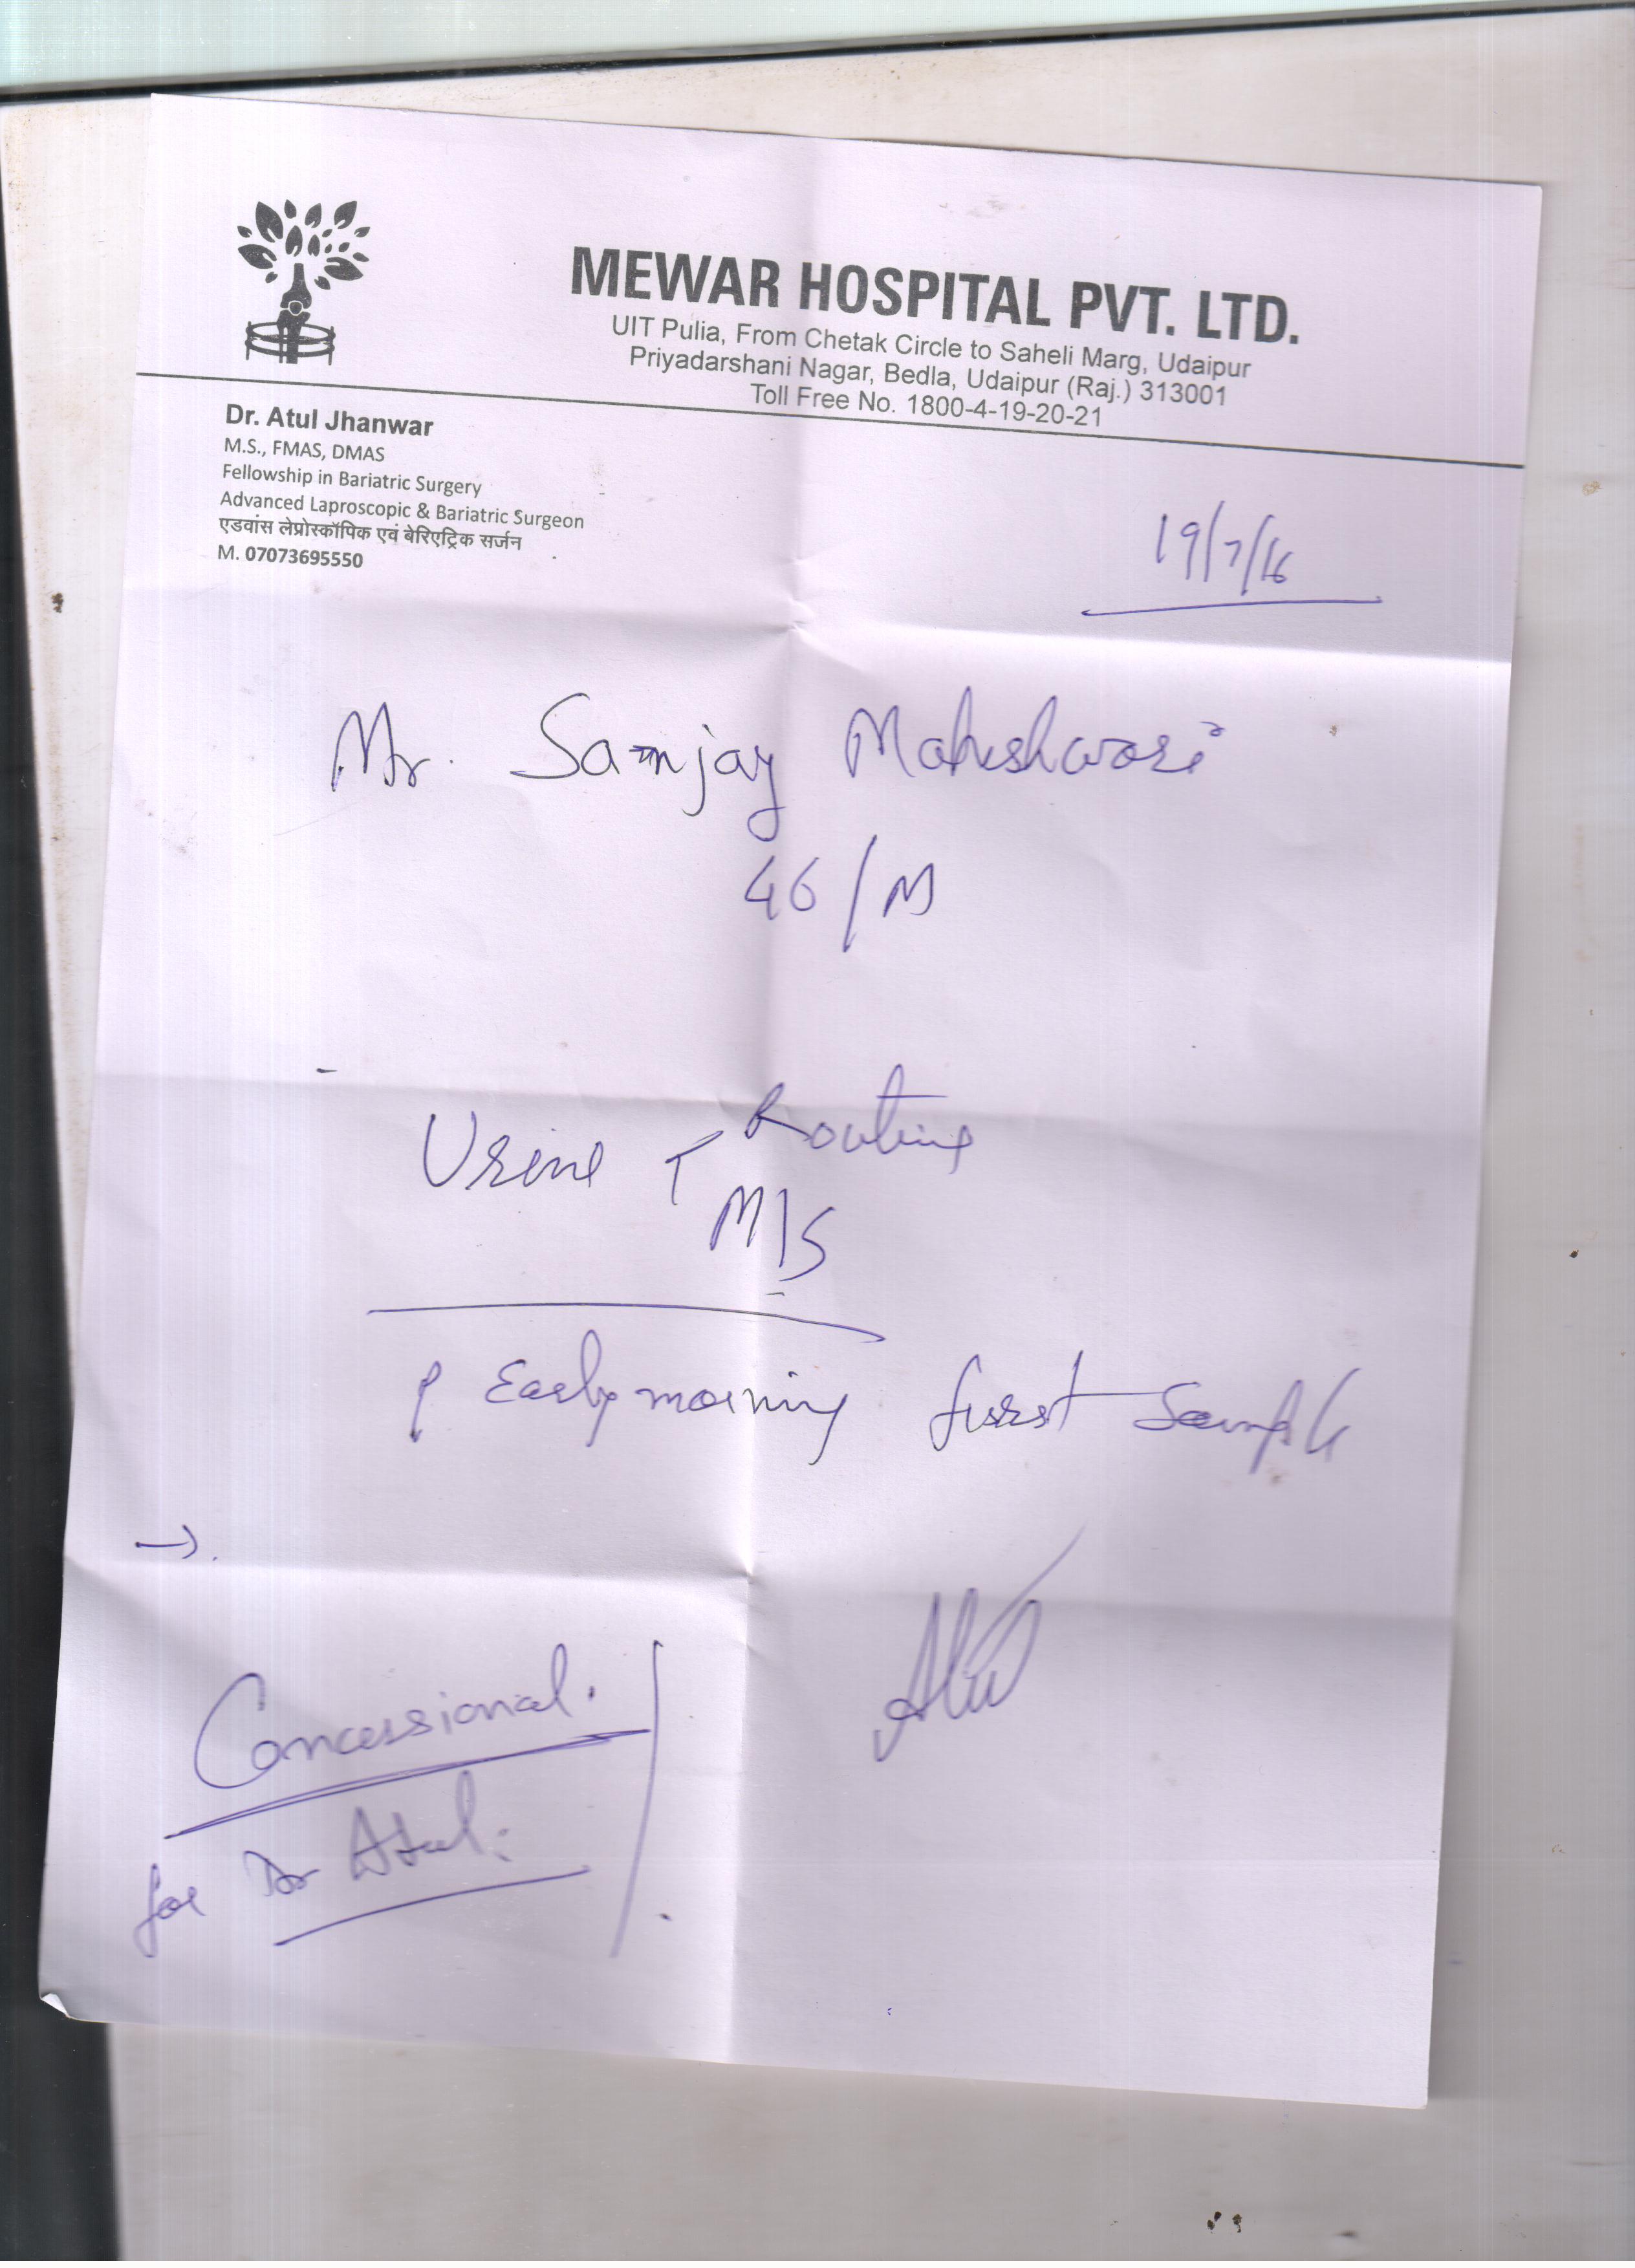 MEWAR HOSPITAL PVT. LTD.
UIT Pulia, From Chetak Circle to Saheli Marg, Udaipur
Priyadarshani Nagar, Bedla, Udaipur (Raj.) 313001
Toll Free No. 1800-4-19-20-21
Dr. Atul Jhanwar
M.S., FMAS, DMAS
Fellowship in Bariatric Surgery
Advanced Laproscopic & Bariatric Surgeon
एडवांस लेप्रोस्कॉपिक एवं बेरिएट्रिक सर्जन
M. 07073695550
19/7/16
Mr. Sanjay Maheshwari
46/M
Urine Routine
M/S
Early morning first Sample
Concessional.
for Dr Atul.